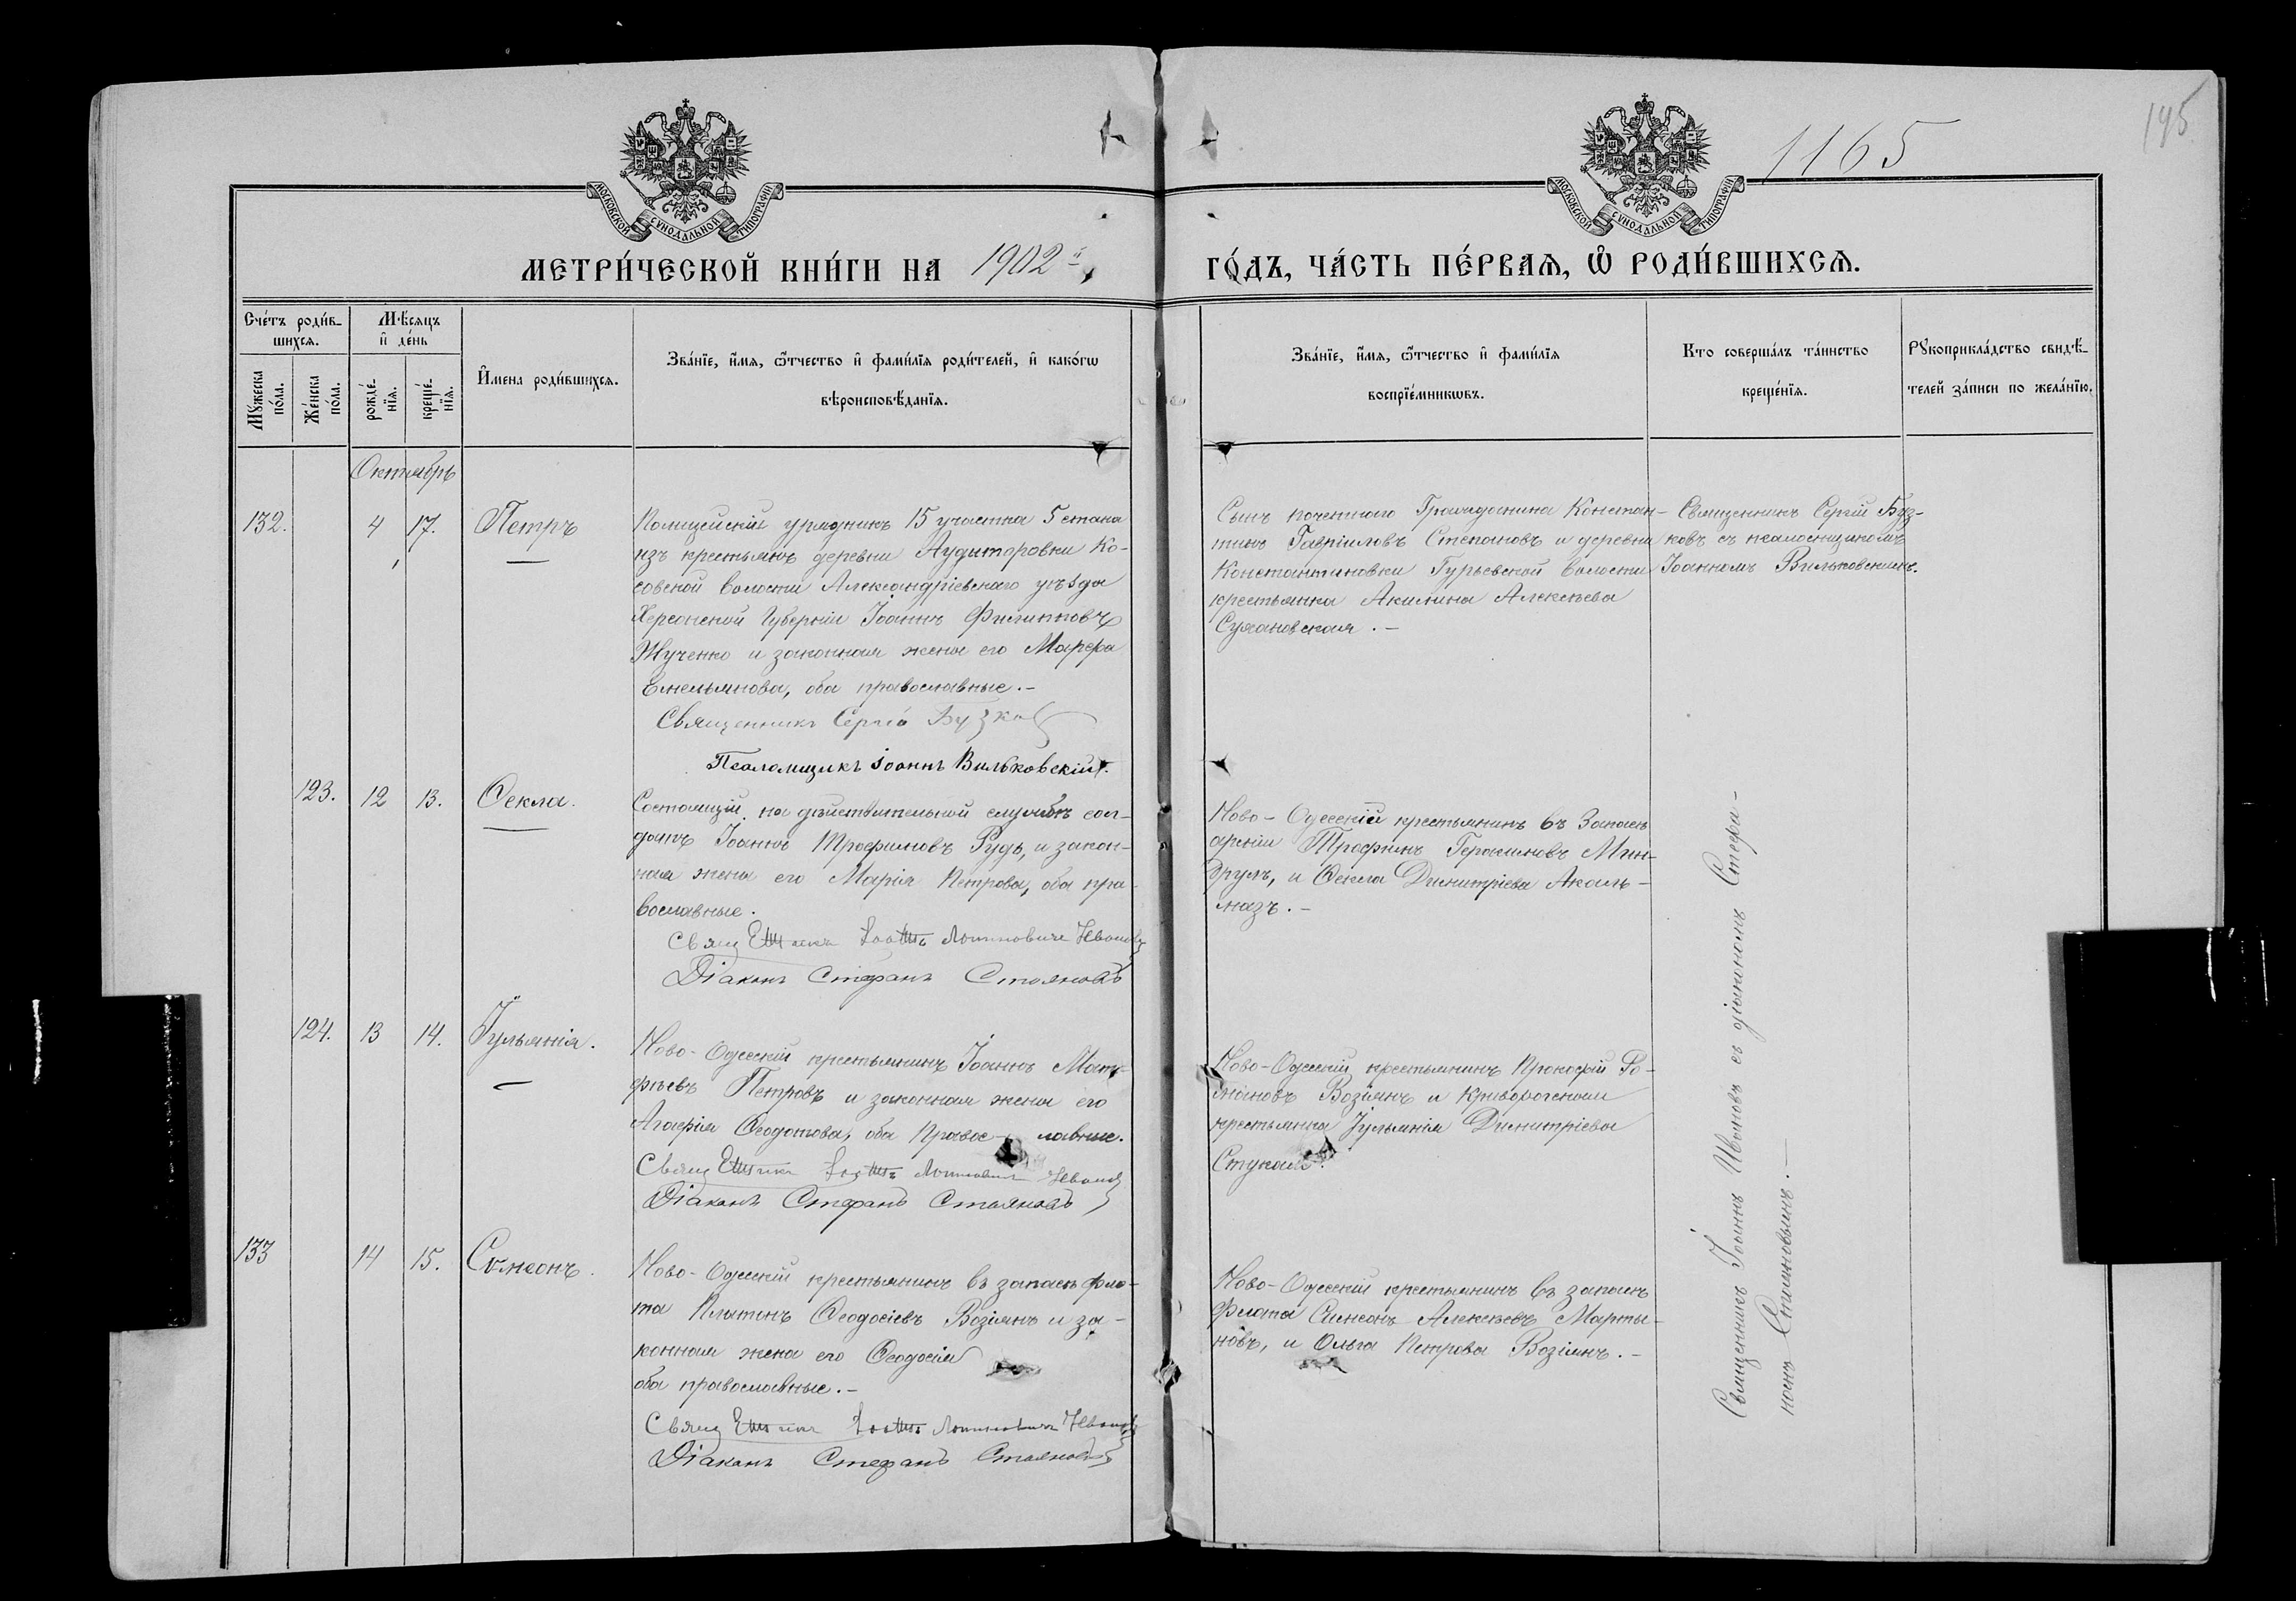 1165
195
МОСКОВСКОЙ СѴНОДАЛЬНОЙ ТИПОГРАФІИ
МОСКОВСКОЙ СѴНОДАЛЬНОЙ ТИПОГРАФІИ
МЕТРИ́ЧЕСКОЙ КНИ́ГИ НА 1902й
ГО́ДЪ, ЧА́СТЬ ПЕ́РВАѦ, Ѡ РОДИ́ВШИХСѦ.
Сче́тъ роди́в-
шихсѧ.
Мꙋжеска по́ла.
Же́нска по́ла.
Мѣ́сѧцъ и де́нь
рожде́-
нїѧ.
креще́-
нїѧ.
И҆мена роди́вшихсѧ.
Зва́нїе, и҆́мѧ, ѻ҆́тчество и҆ фами́лїѧ роди́телей, и҆ како́гѡ
вѣроисповѣ́данїѧ.
Зва́нїе, и҆́мѧ, ѻ҆́тчество и҆ фами́лїѧ
воспрїе́мникѡвъ.
Кто соверша́лъ та́инство
креще́нїѧ.
Рꙋкоприкла́дство свидѣ́-
телей за́писи по жела́нїю.
Октябрь
132. 4 17. Петръ
Полицейскій урядникъ 15 участка 5 стана
изъ крестьянъ деревни Аудиторовки Ко-
совской волости Александрійскаго уѣзда
Херсонской Губерніи Іоаннъ Филипповъ
Жученко и законная жена его Марфа
Емельянова, оба православные.-
Священникъ Сергій Бузковъ
Псаломщикъ Іоаннъ Вильковскій.
Сынъ почетнаго Гражданина Констан-
тинъ Гавріиловъ Степановъ и деревни
Константиновки Гурьевской волости
крестьянка Акилина Алексѣева
Сухановская.-
Священникъ Сергій Буз-
ковъ съ псаломщикомъ
Іоанномъ Вильковскимъ.
123. 12 13. Ѳекла.
Состоящій на дѣйствительной службѣ сол-
датъ Іоаннъ Трофимовъ Рудь, и закон-
ная жена его Марія Петрова, оба пра-
вославные.
Священникъ Іоаннъ Логиновичъ Ивановъ
Діаконъ Стефанъ Стояновъ
Ново-Одесскій крестьянинъ въ Запасѣ
арміи Трофимъ Герасимовъ Мин-
друлъ, и Ѳекла Димитріева Акаль-
мазъ.-
124. 13 14. Іульянія.
Ново-Одесскій крестьянинъ Іоаннъ Мат-
фѣевъ Петровъ и законная жена его
Агафія Ѳеодотова, оба Православные.
Священникъ Іоаннъ Логиновичъ Ивановъ
Діаконъ Стефанъ Стояновъ
Ново-Одесскій крестьянинъ Прокофій Ро-
мановъ Возіянъ и Криворожская
крестьянка Іульянія Димитріева
133 14 15. Сѵмеонъ.
Ново-Одесскій крестьянинъ въ запасѣ фло-
та Платонъ Ѳеодосіевъ Возіянъ и за-
конная жена его Ѳеодосія
оба православные.-
Священникъ Іоаннъ Логиновичъ Ивановъ
Діаконъ Стефанъ Стояновъ
Ново-Одесскій крестьянинъ въ запасѣ
флота Симеонъ Алексѣевъ Марты-
новъ, и Ольга Петрова Возіянъ.-
Священникъ Іоаннъ Ивановъ съ діакономъ Стефа-
номъ Стояновымъ.-